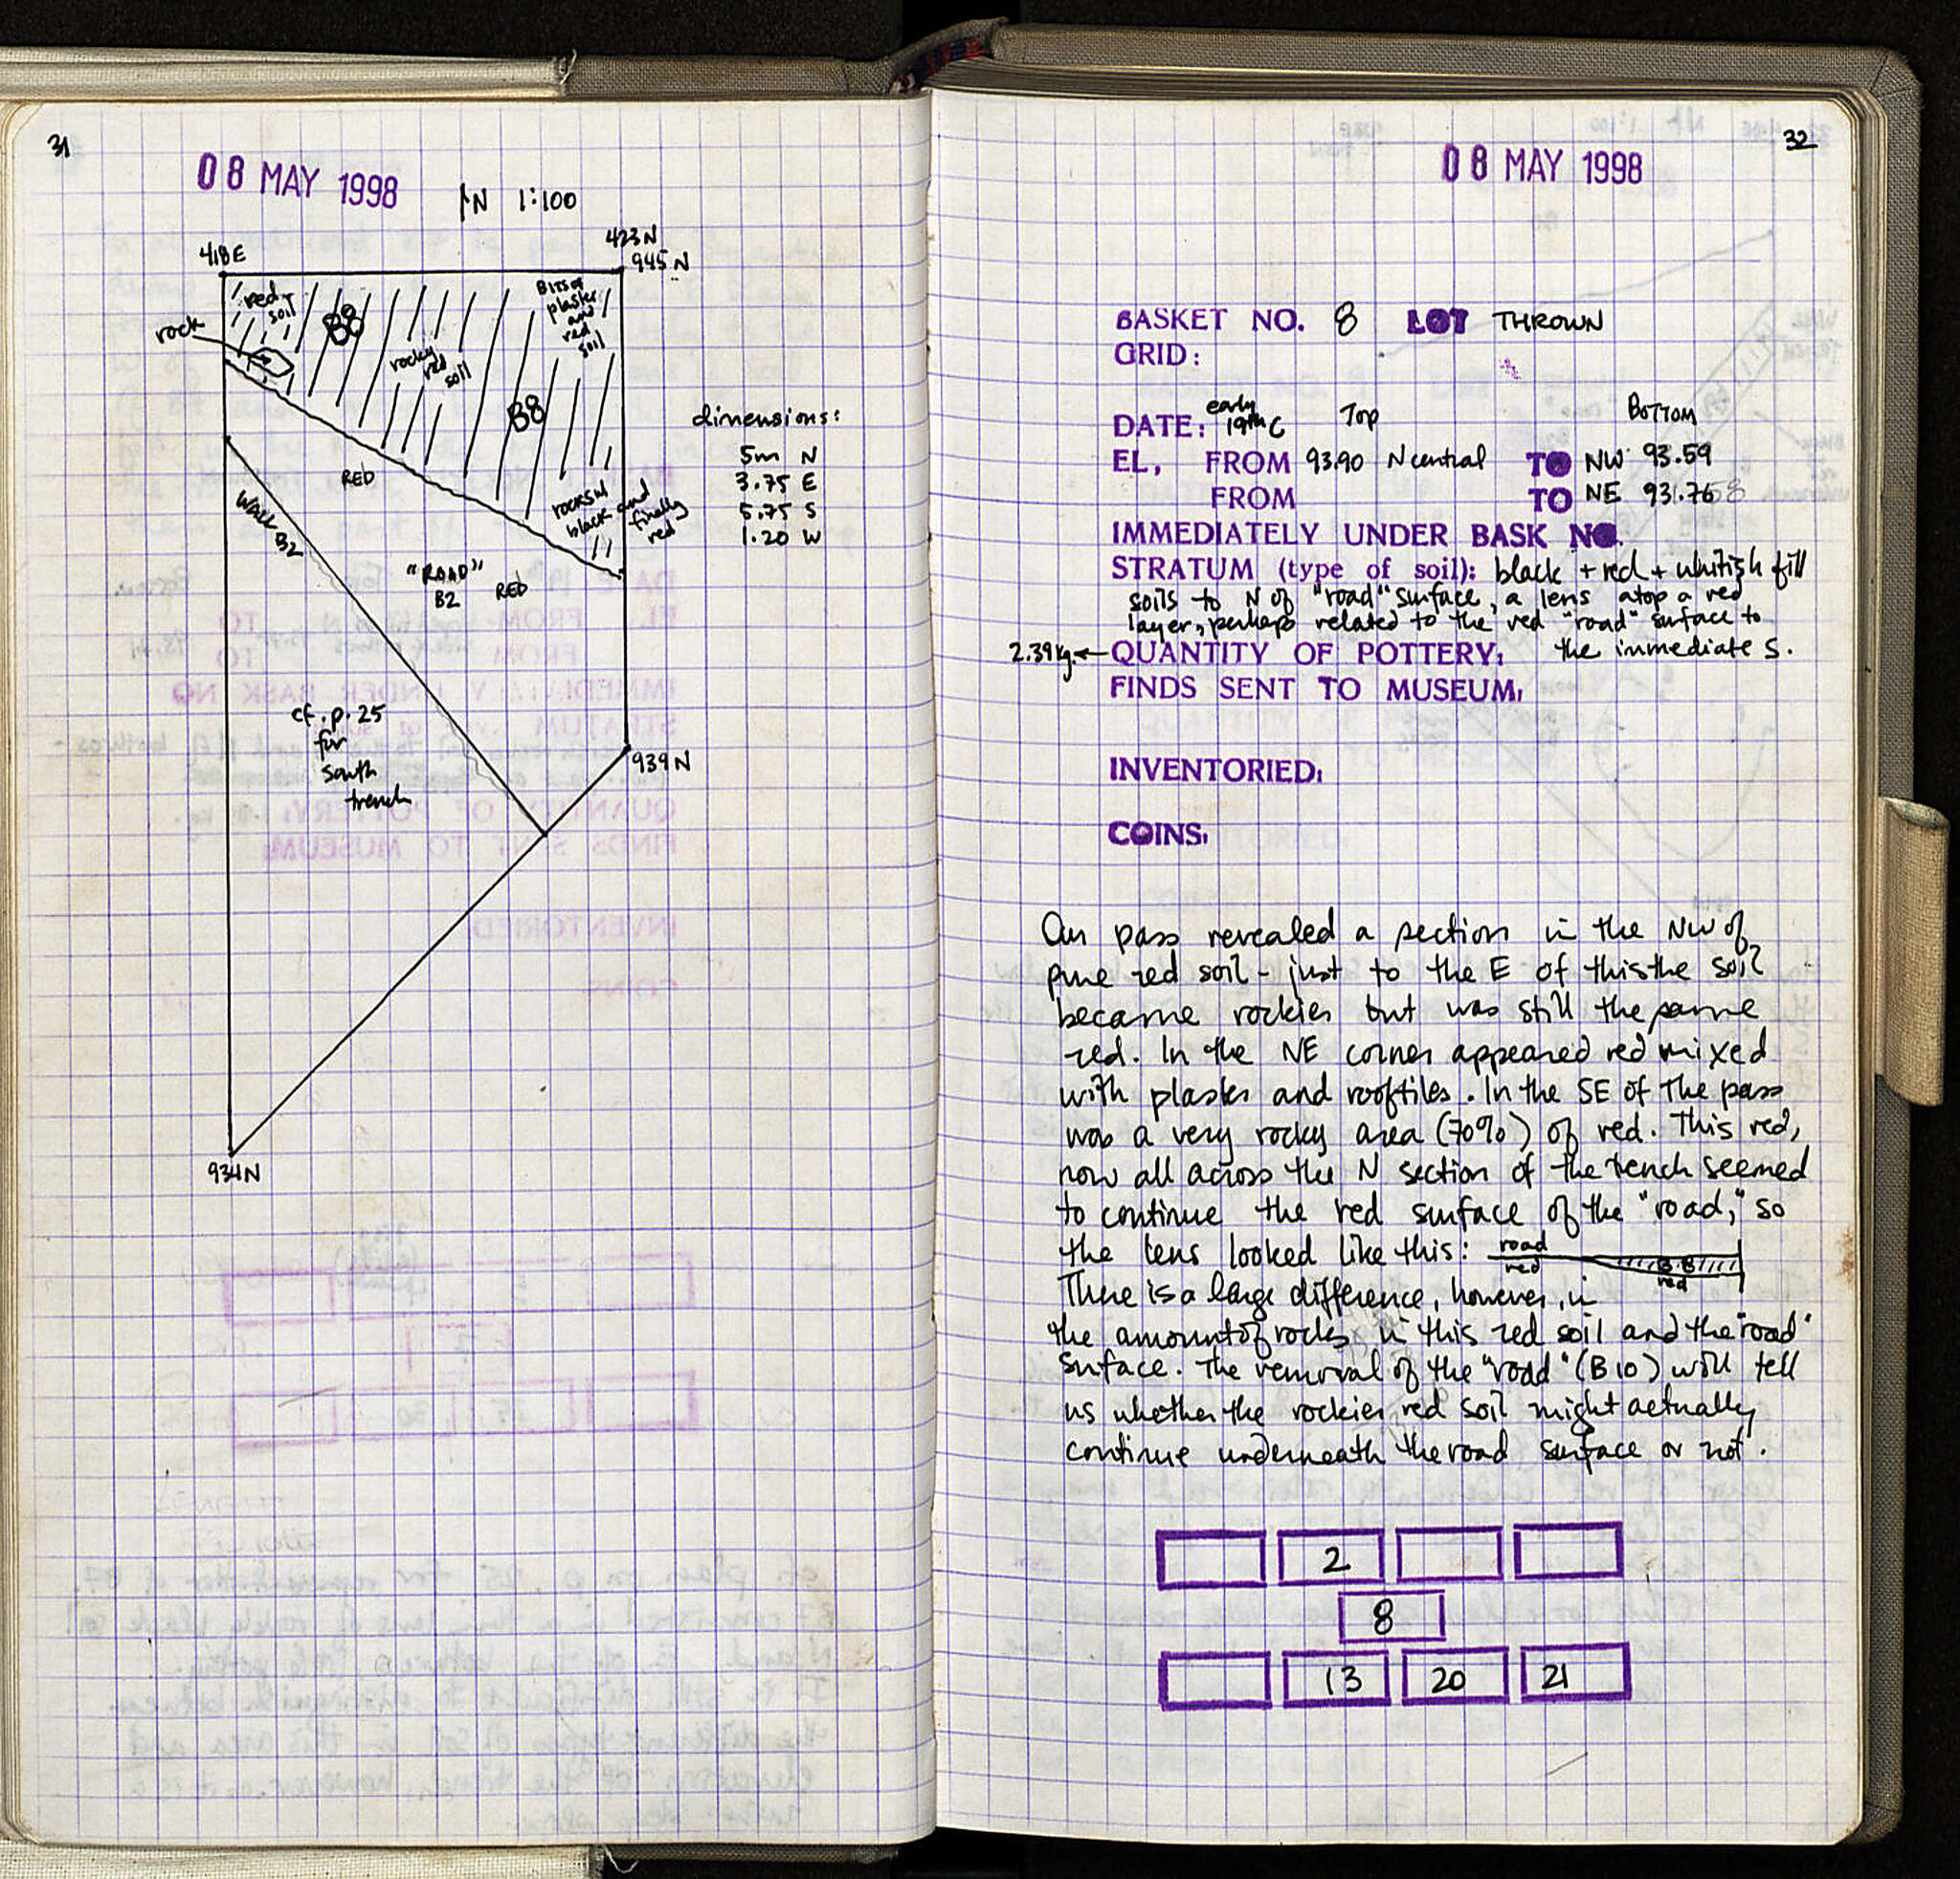 31
08 MAY 1998
N 1:100
418E
423N
945 N
red
soil
B8
Bits of
plaster
and
red
soil
rock
rocky
red
soil
B8
dimensions:
5m N
3.75 E
5.75 S
1.20 W
RED
rocks in
black and
finally
red
Wall
B2
"ROAD"
B2
RED
cf. p. 25
for
south
trench
939N
934N
32
08 MAY 1998
BASKET NO. 8 LOT THROWN
GRID:
DATE: early 19th C Top Bottom
EL, FROM 93.90 N central TO NW 93.59
FROM TO NE
IMMEDIATELY UNDER BASK NO.
STRATUM (type of soil): black + red + whitish fill
soils to N of "road" surface, a lens atop a red
layer, perhaps related to the red "road" surface to
the immediate S.
2.39kg. ← QUANTITY OF POTTERY:
FINDS SENT TO MUSEUM:
INVENTORIED:
COINS:
Our pass revealed a section in the NW of
pure red soil - just to the E of this the soil
became rockier but was still the same
red. In the NE corner appeared red mixed
with plaster and rooftiles. In the SE of the pass
was a very rocky area (70%) of red. This red,
now all across the N section of the trench seemed
to continue the red surface of the "road," so
the lens looked like this: road
red
B8
red
There is a large difference, however, in
the amount of rocks in this red soil and the "road"
surface. The removal of the "road" (B10) will tell
us whether the rockier red soil might actually
continue underneath the road surface or not.
2
8
13 20 21